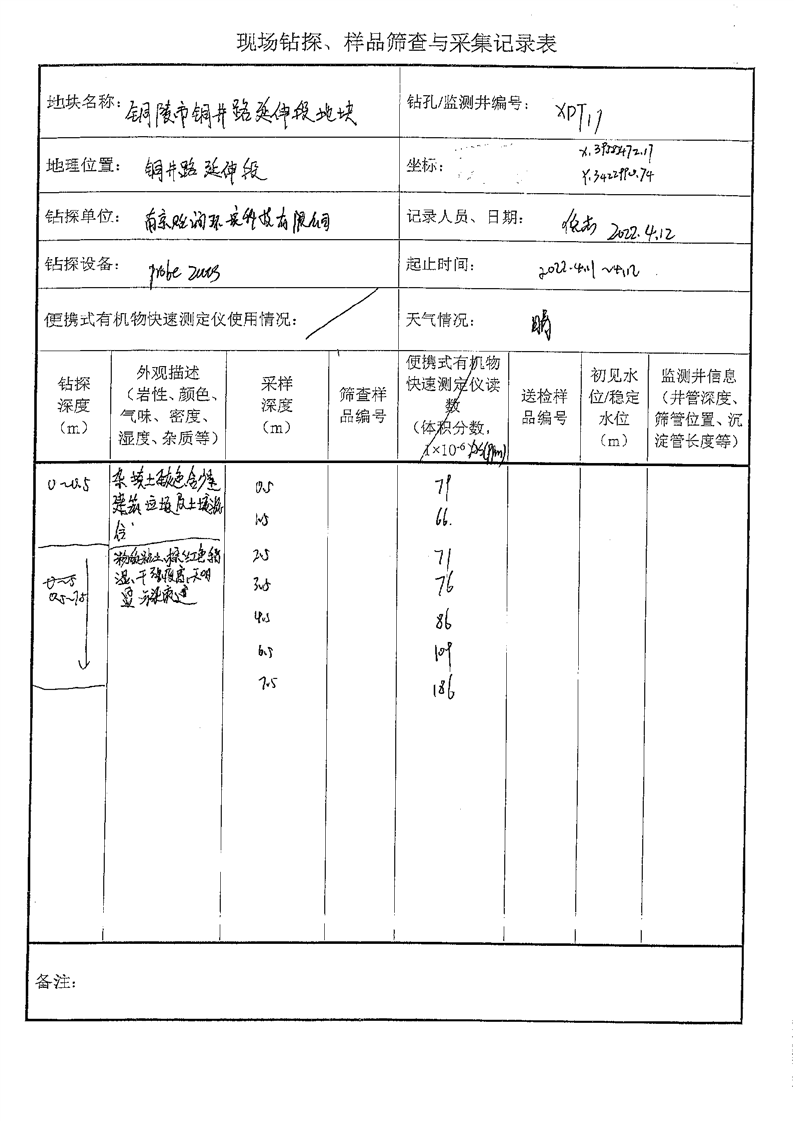 现场钻探、样品筛查与采集记录表
地块名称: 铜陵市铜井路延伸段地块
钻孔/监测井编号: XPT17
地理位置: 铜井路延伸段
坐标:
钻探单位: 南京 环 科技有限公司
记录人员、日期: 2022.4.12
钻探设备:
起止时间: 2022.4.11～4.12
便携式有机物快速测定仪使用情况: /
天气情况: 晴
钻探
深度
(m)
外观描述
(岩性、颜色、
气味、密度、
湿度、杂质等)
采样
深度
(m)
筛查样
品编号
便携式有机物
快速测定仪读
数
(体积分数,
1×10⁻⁶ (ppm)
送检样
品编号
初见水
位/稳定
水位
(m)
监测井信息
(井管深度、
筛管位置、沉
淀管长度等)
0～0.5
杂填土 色含少量
建筑垃圾及土壤混
合
0.5 79
1.5 66
0.5～7.5
粉质粘土,棕红色稍
湿、干强度高,无明
显污染痕迹
2.5 71
3.5 76
4.5 86
6.5 109
7.5 186
备注: